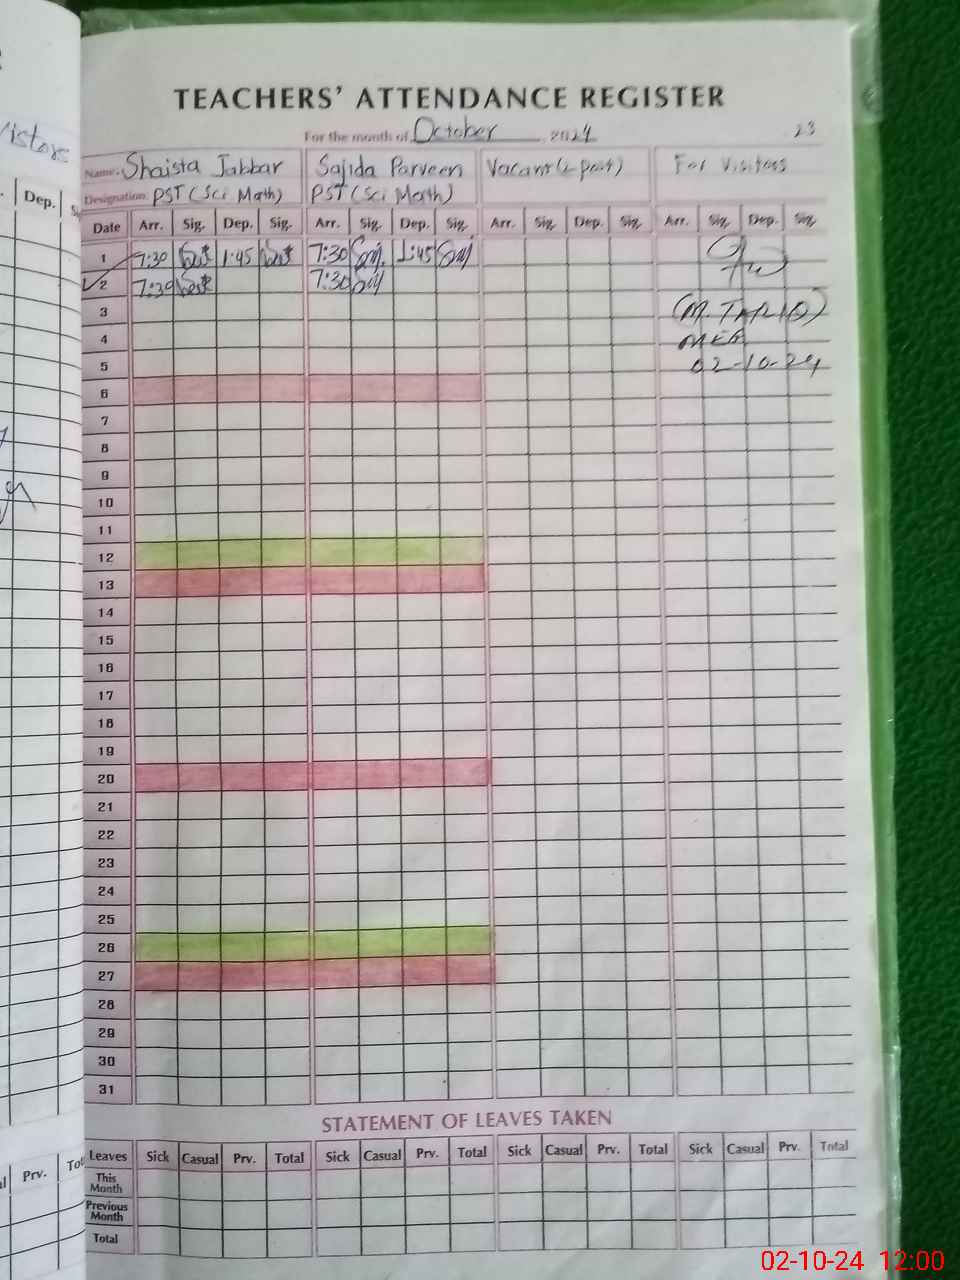 TEACHERS' ATTENDANCE REGISTER
For the month of October 2024 23
Name. Shaista Jabbar Sajida Parveen Vacant ( post) For Visitors
Designation. PST (Sci Math) PST (Sci Math)
Date Arr. Sig. Dep. Sig. Arr. Sig. Dep. Sig. Arr. Sig. Dep. Sig. Arr. Sig. Dep. Sig.
1 7:30 1:45 7:30 1:45
2 7:30 7:30
3 (M. TARIQ)
4 MEA
5 02-10-24
6
7
8
9
10
11
12
13
14
15
16
17
18
19
20
21
22
23
24
25
26
27
28
29
30
31
STATEMENT OF LEAVES TAKEN
Leaves Sick Casual Prv. Total Sick Casual Prv. Total Sick Casual Prv. Total Sick Casual Prv. Total
This
Month
Previous
Month
Total
Dep.
Prv.
02-10-24 12:00